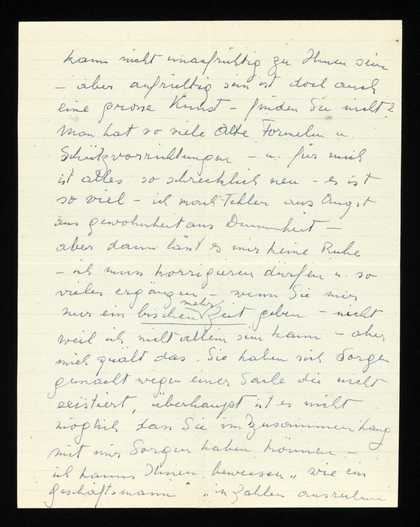 kann nicht unaufrichtig zu Ihnen sein
– aber aufrichtig sein ist doch auch
eine grosse Kunst – finden Sie nicht?
Man hat so viele alte Formeln u
Schutzvorrichtungen – u. für mich
ist alles so schrecklich neu – es ist
so viel – ich mach Fehler aus Angst
aus gewohnheit aus Dummheit –
aber dann lässt es mir keine Ruhe
– ich muss korrigieren dürfen u. so
vieles ergänzen – wenn Sie mir
mehr
nur ein bischen Zeit geben – nicht
weil ich nicht allein sein kann – aber
mich quält das. Sie haben sich Sorgen
gemacht wegen einer Sache die nicht
existiert, überhaupt ist es nicht
möglich dass Sie im Zusammenhang
mit mir Sorgen haben können –
ich kanns Ihnen beweisen „wie ein
Geschäftsmann" „in Zahlen ausrechnen